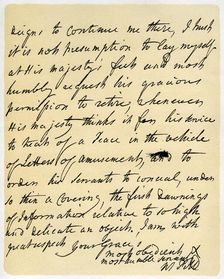 deigns to continue me there, I trust
it is not presumption to lay myself
at His majesty's feet and most
humbly request his gracious
permission to retire whenever
His majesty thinks it for his service
to treat of a Peace in the vehicle
of Letters of amusement, and to
order his Servants to conceal, under
so thin a Covering, the first Dawnings
of Information relative to so high
and delicate an object. I am with
great respect Your Grace's
most obedient &
most humble servant